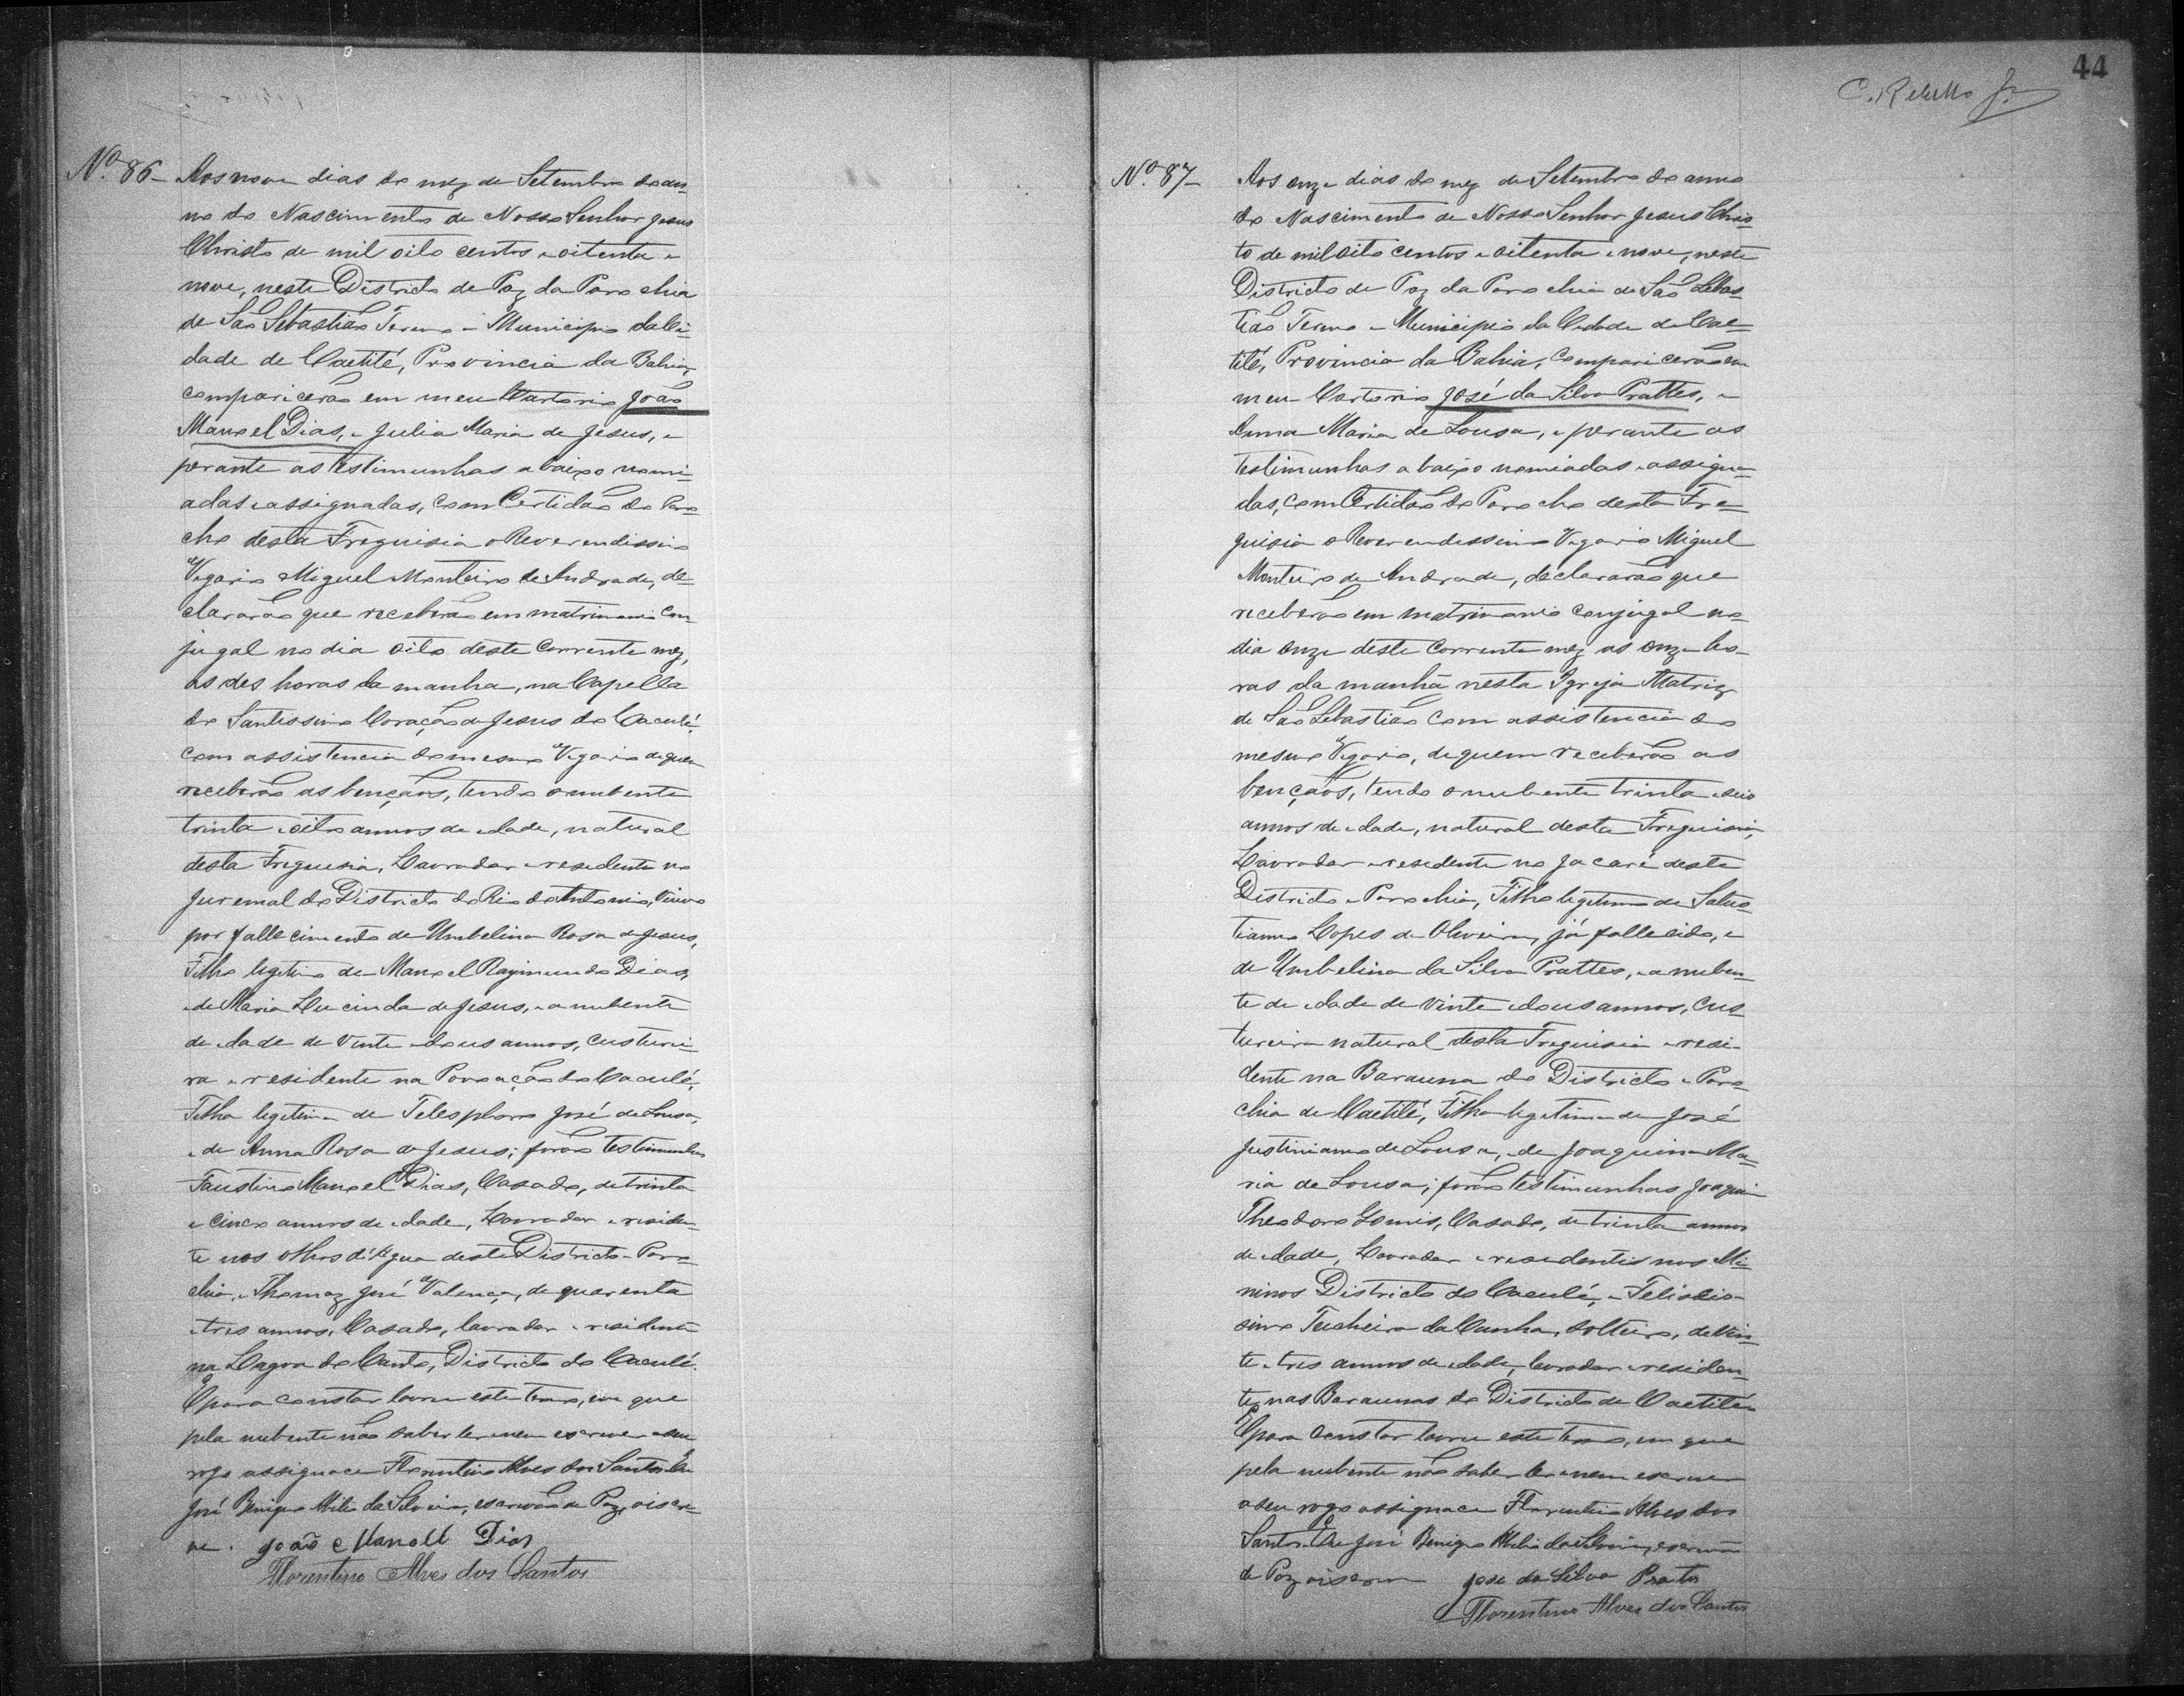 44
C. Rebello Jr
Nº 86- Aos nove dias do mez de Setembro do an
no do Nascimento de Nosso Senhor Jesus
Christo de mil oito centos e oitenta e
nove, neste Districto de Paz da Parochia
de São Sebastião Termo e Municipio da Ci=
dade de Caetité, Provincia da Bahia,
comparicerão em meu Cartorio João
Manoel Dias, e Julia Maria de Jesus, e
perante as testimunhas abaixo nomi=
adas e assignadas, com Certidão do Paro=
cho desta Freguisia o Reverendissimo
Vigario Miguel Monteiro de Andrade, de=
clararão que receberão em matrimonio con=
jugal no dia oito deste corrente mez,
as des horas da manha, na Capella
do Santissimo Coração de Jesus do Caculé,
com assistencia do mesmo Vigario de quem
receberão as bençãos, tendo o nubente
trinta e oito annos de edade, natural
desta Freguesia, Lavrador e residente no
Juremal do Districto do Rio do Antonio, Viuvo
por fallecimento de Umbelina Rosa de Jesus,
Filho legitimo de Manoel Raymundo Dias,
e de Maria Lucinda de Jesus, e a nubente
de edade de Vinte e dous annos, Custurei=
ra e residente na Povoação do Caculé,
Filha legitima de Telesphoro José de Sousa,
e de Anna Rosa de Jesus; forão testimunhas
Faustino Manoel Dias, Casado, de trinta
e cinco annos de edade, Lavrador e residen=
te nos olhos d'Agua deste Districto e Paro=
chia, e Thomaz José Valença, de quarenta
e tres annos, Casado, lavrador e residente
na Lagoa do Canto, Districto do Caculé.
E para constar lavrei este termo, em que
pela nubente não saber ler e nem escrever a seu
rogo assignace Florentino Alves dos Santos. Eu
José Benigno da Silveira, escrivão de Paz, o iscre=
ve. João Manoel Dias
Florentino Alves dos Santos
Nº 87- Aos onze dias do mez de Setembro do anno
do Nascimento de Nosso Senhor Jesus Chris=
to de mil oito centos e oitenta e nove, neste
Districto de Paz da Parochia de São Sebas=
tião Termo e Municipio da Cidade de Cae=
tité, Provincia da Bahia, comparicerão em
meu Cartorio José da Silva Prattes, e
Anna Maria de Sousa, e perante as
testimunhas abaixo nomiadas e assigna=
das, com Certidão do Parocho desta Fre=
guisia o Reverendessimo Vigario Miguel
Monteiro de Andrade, declararão que
receberão em matrimonio conjugal no
dia onze deste corrente mez as onze ho=
ras da manhã nesta Igreja Matriz
de São Sebastião com assistencia do
mesmo Vigario, de quem receberão as
bençãos, tendo o nubente trinta e seis
annos de edade, natural desta Freguisia,
Lavrador e residente no Jacaré deste
Districto e Parochia, Filho legitimo de Salus=
tianno Lopes de Oliveira, já fallecido, e
de Umbelina da Silva Prattes, e a nuben=
te de edade de vinte e dous annos, Cus=
tureira natural desta Freguisia e resi=
dente na Barauna do Districto e Paro=
chia de Caetité, Filha legitima de José
Justinianno de Sousa, e de Joaquina Ma=
ria de Sousa; forão testimunhas Joaquim
Theodoro Gomis, Casado, de trinta annos
de edade, Lavrador e residente nos Mi=
ninos Districto do Caculé, e Felis
simo Teicheira da Cunha, solteiro, de Vin=
te e tres annos de edade, lavrador e residen=
te nas Baraunas do Districto de Caetité.
E para constar lavrei este termo, em que
pela nubente não saber ler e nem escrever
a seu rogo assignace Florentino Alves dos
Santos. Eu José Benigno da Silveira, escrivão
de Paz o iscrevi José da Silva Prates
Florentino Alves dos Santos